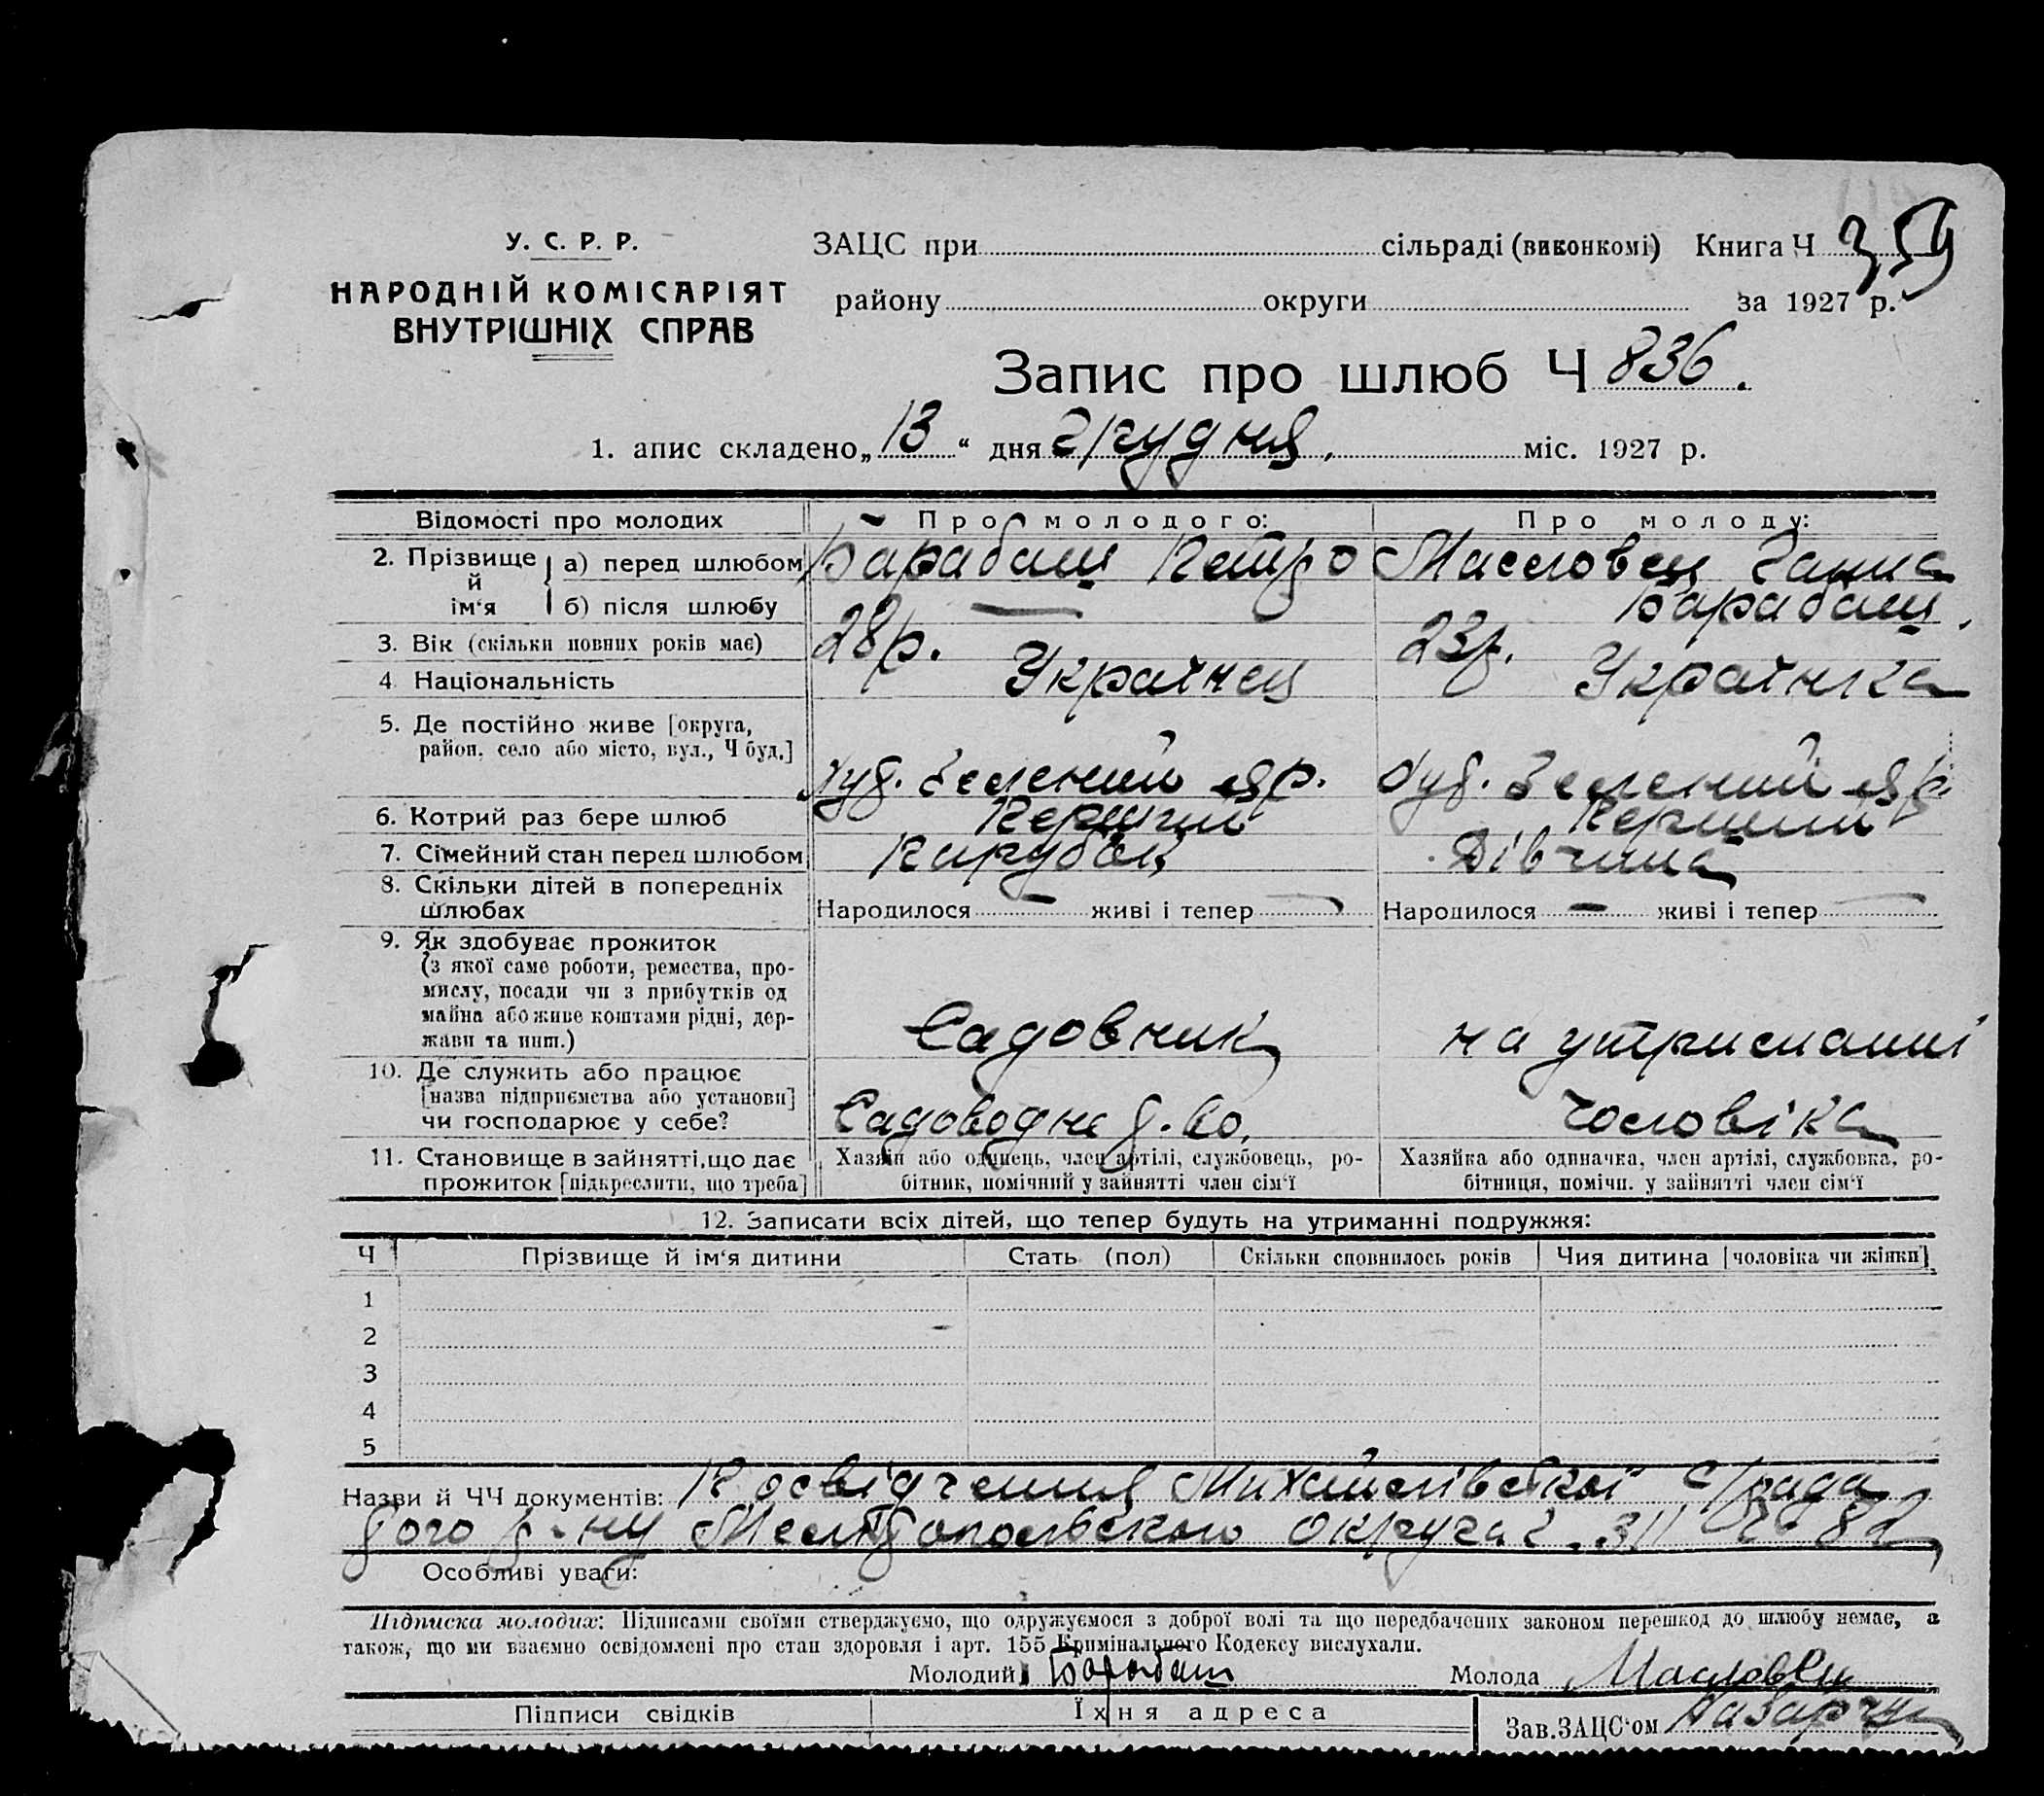 У. С. Р. Р.
НАРОДНІЙ КОМІСАРІЯТ
ВНУТРІШНІХ СПРАВ
ЗАЦС при сільраді (виконкомі) Книга Ч 359
району округи за 1927 р.
Запис про шлюб Ч 836.
1. апис складено „13“ дня грудня, міс. 1927 р.
Відомості про молодих Про молодого: Про молоду:
2. Прізвище й ім‘я
а) перед шлюбом Барабаш Петро Масловец Ганна
б) після шлюбу — Барабаш.
3. Вік (скільки повних років має) 28 р. 23 р.
4. Національність Українец Українка
5. Де постійно живе [округа,
район, село або місто, вул., Ч буд.] Худ. Зелений яр. Худ. Зелений яр.
6. Котрий раз бере шлюб Перший Перший
7. Сімейний стан перед шлюбом Парубок Дівчина
8. Скільки дітей в попередніх
шлюбах Народилося — живі і тепер — Народилося — живі і тепер —
9. Як здобуває прожиток
(з якої саме роботи, ремества, про-
мислу, посади чи з прибутків од
майна або живе коштами рідні, дер-
жави та инш.) Садовник на утриманні
10. Де служить або працює
[назва підприємства або установи]
чи господарює у себе? Садоводне чоловіка
11. Становище в зайнятті, що дає
прожиток [підкреслити, що треба]
Хазяїн або одинець, член артілі, службовець, ро-
бітник, помічний у зайнятті член сім‘ї
Хазяйка або одиначка, член артілі, службовка, ро-
бітниця, помічн. у зайнятті член сім‘ї
12. Записати всіх дітей, що тепер будуть на утриманні подружжя:
Ч Прізвище й ім‘я дитини Стать (пол) Скільки сповнилось років Чия дитина [чоловіка чи жінки]
1
2
3
4
5
Назви й ЧЧ документів: Посвідчення Михайлівської
р-ну Мелітопольського
Особливі уваги:
Підписка молодих: Підписами своїми стверджуємо, що одружуємося з доброї волі та що передбачених законом перешкод до шлюбу немає, а
також, що ми взаємно освідомлені про стан здоровля і арт. 155 Кримінального Кодексу вислухали.
Молодий Барабаш Молода Масловец
Підписи свідків Їхня адреса Зав.ЗАЦС‘ом